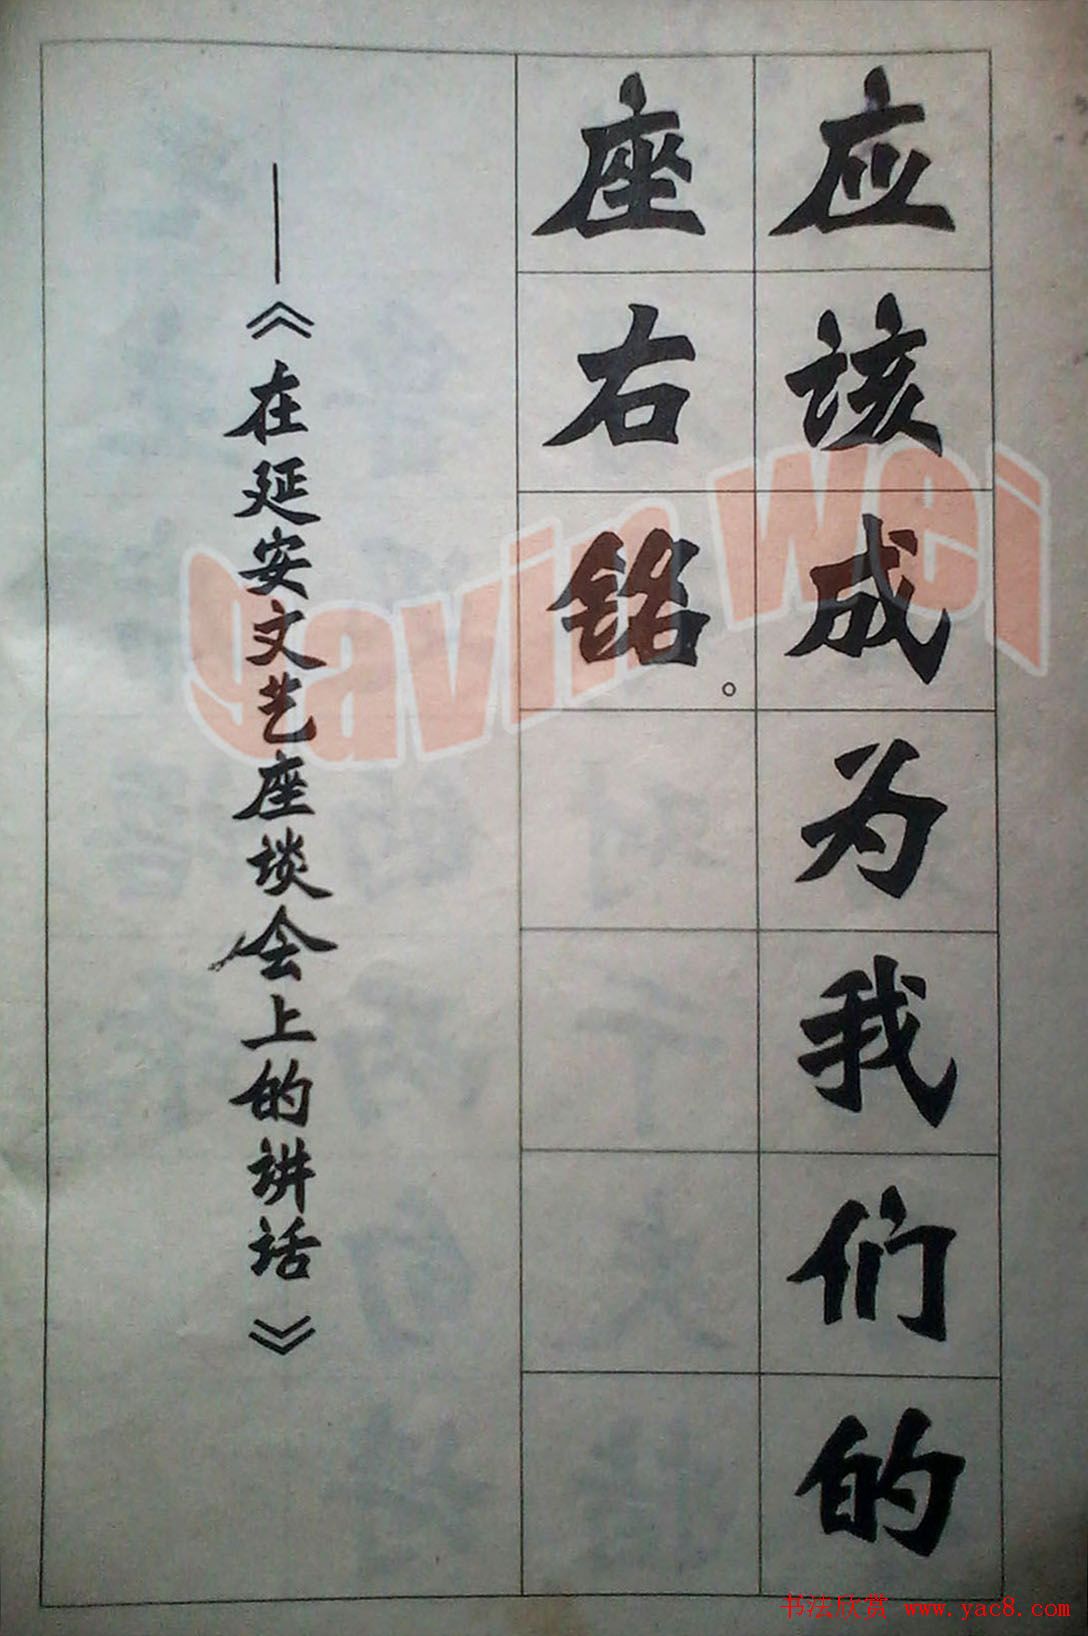 应该成为我们的
座右铭。
——《在延安文艺座谈会上的讲话》
gavin wei
书法欣赏 www.yac8.com